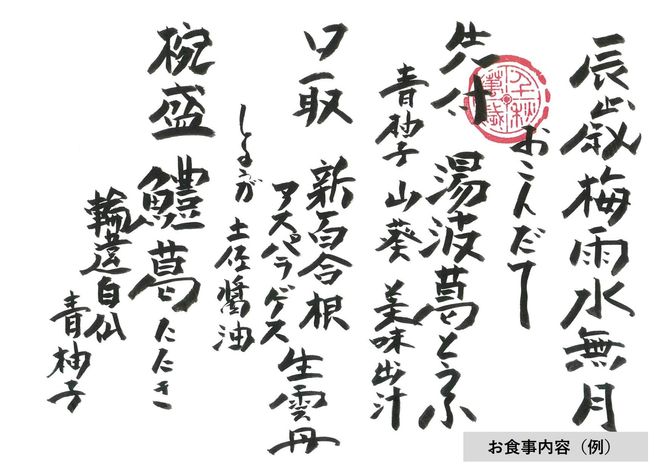 辰歳梅雨水無月
おこんだて
先付 湯波葛とうふ
青柚子 山葵 美味出汁
口取 新百合根 生雲丹
アスパラゲス
しょうが 土佐醤油
椀盛 鱧葛たたき
輪違白瓜
青柚子
千秋萬歳
お食事内容（例）